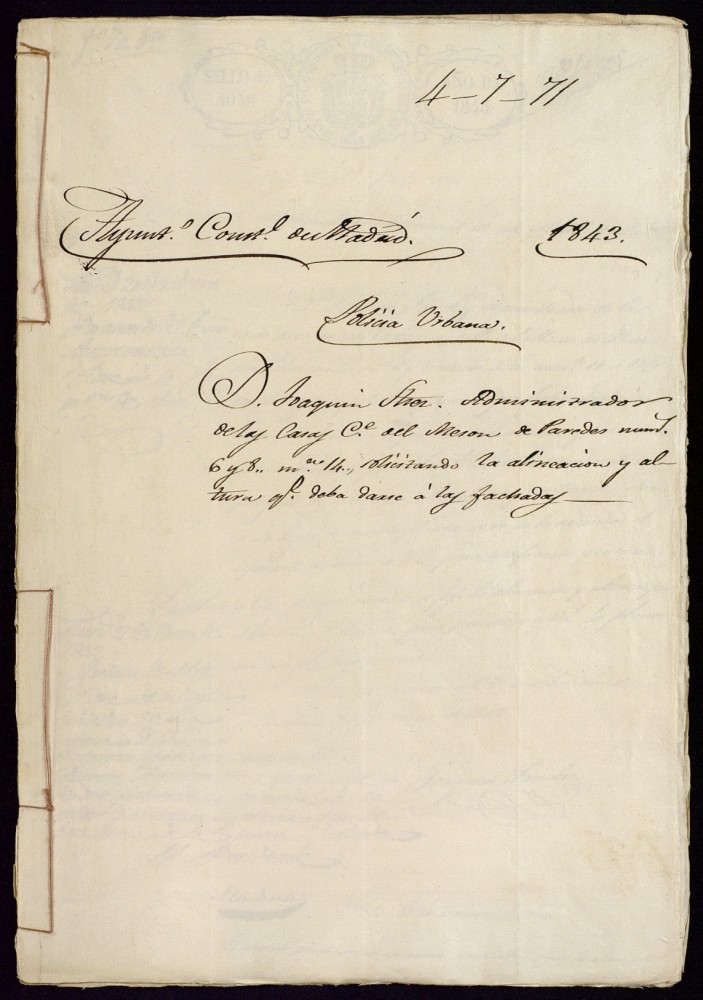 4-7-71
Ayunt.º Const.l de Madrid.
1843.
Policia Urbana.
D. Joaquin Administrador
de las Casas C.e del Meson de Paredes num.s
6 y 8., m.na 14., solicitando la alineacion y al-
tura q.e deba darse á las fachadas